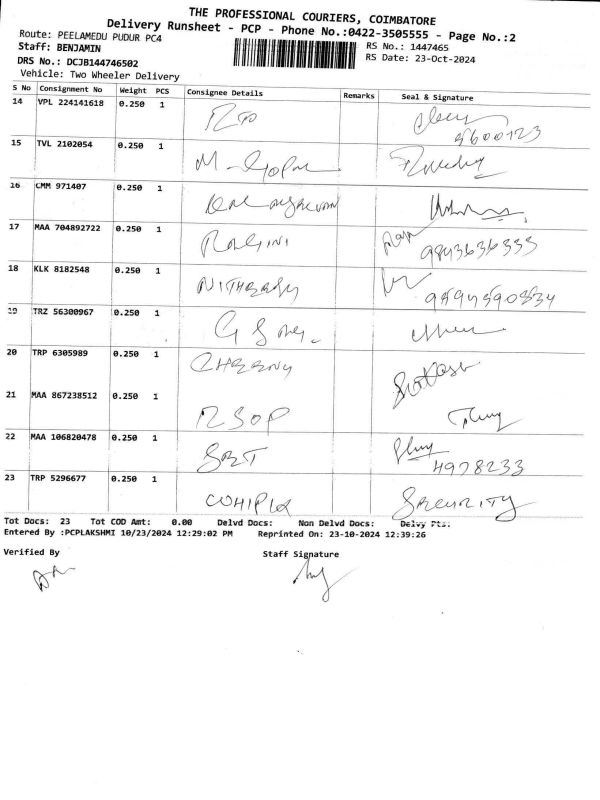 THE PROFESSIONAL COURIERS, COIMBATORE
Delivery Runsheet - PCP - Phone No.:0422-3505555 - Page No.:2
Route: PEELAMEDU PUDUR PC4
RS No.: 1447465
Staff: BENJAMIN
RS Date: 23-Oct-2024
DRS No.: DCJB144746502
Vehicle: Two Wheeler Delivery
S No Consignment No Weight PCS Consignee Details Remarks Seal & Signature
14 VPL 224141618 0.250 1
9600123
15 TVL 2102054 0.250 1 M-Gopal
16 CMM 971407 0.250 1
17 MAA 704892722 0.250 1 RAGINI
9843636333
18 KLK 8182548 0.250 1
19 TRZ 56300967 0.250 1
20 TRP 6305989 0.250 1
21 MAA 867238512 0.250 1 RSOP
22 MAA 106820478 0.250 1
4978233
23 TRP 5296677 0.250 1 SECURITY
Tot Docs: 23 Tot COD Amt: 0.00 Delvd Docs: Non Delvd Docs: Delvy Pts:
Entered By :PCPLAKSHMI 10/23/2024 12:29:02 PM Reprinted On: 23-10-2024 12:39:26
Verified By Staff Signature